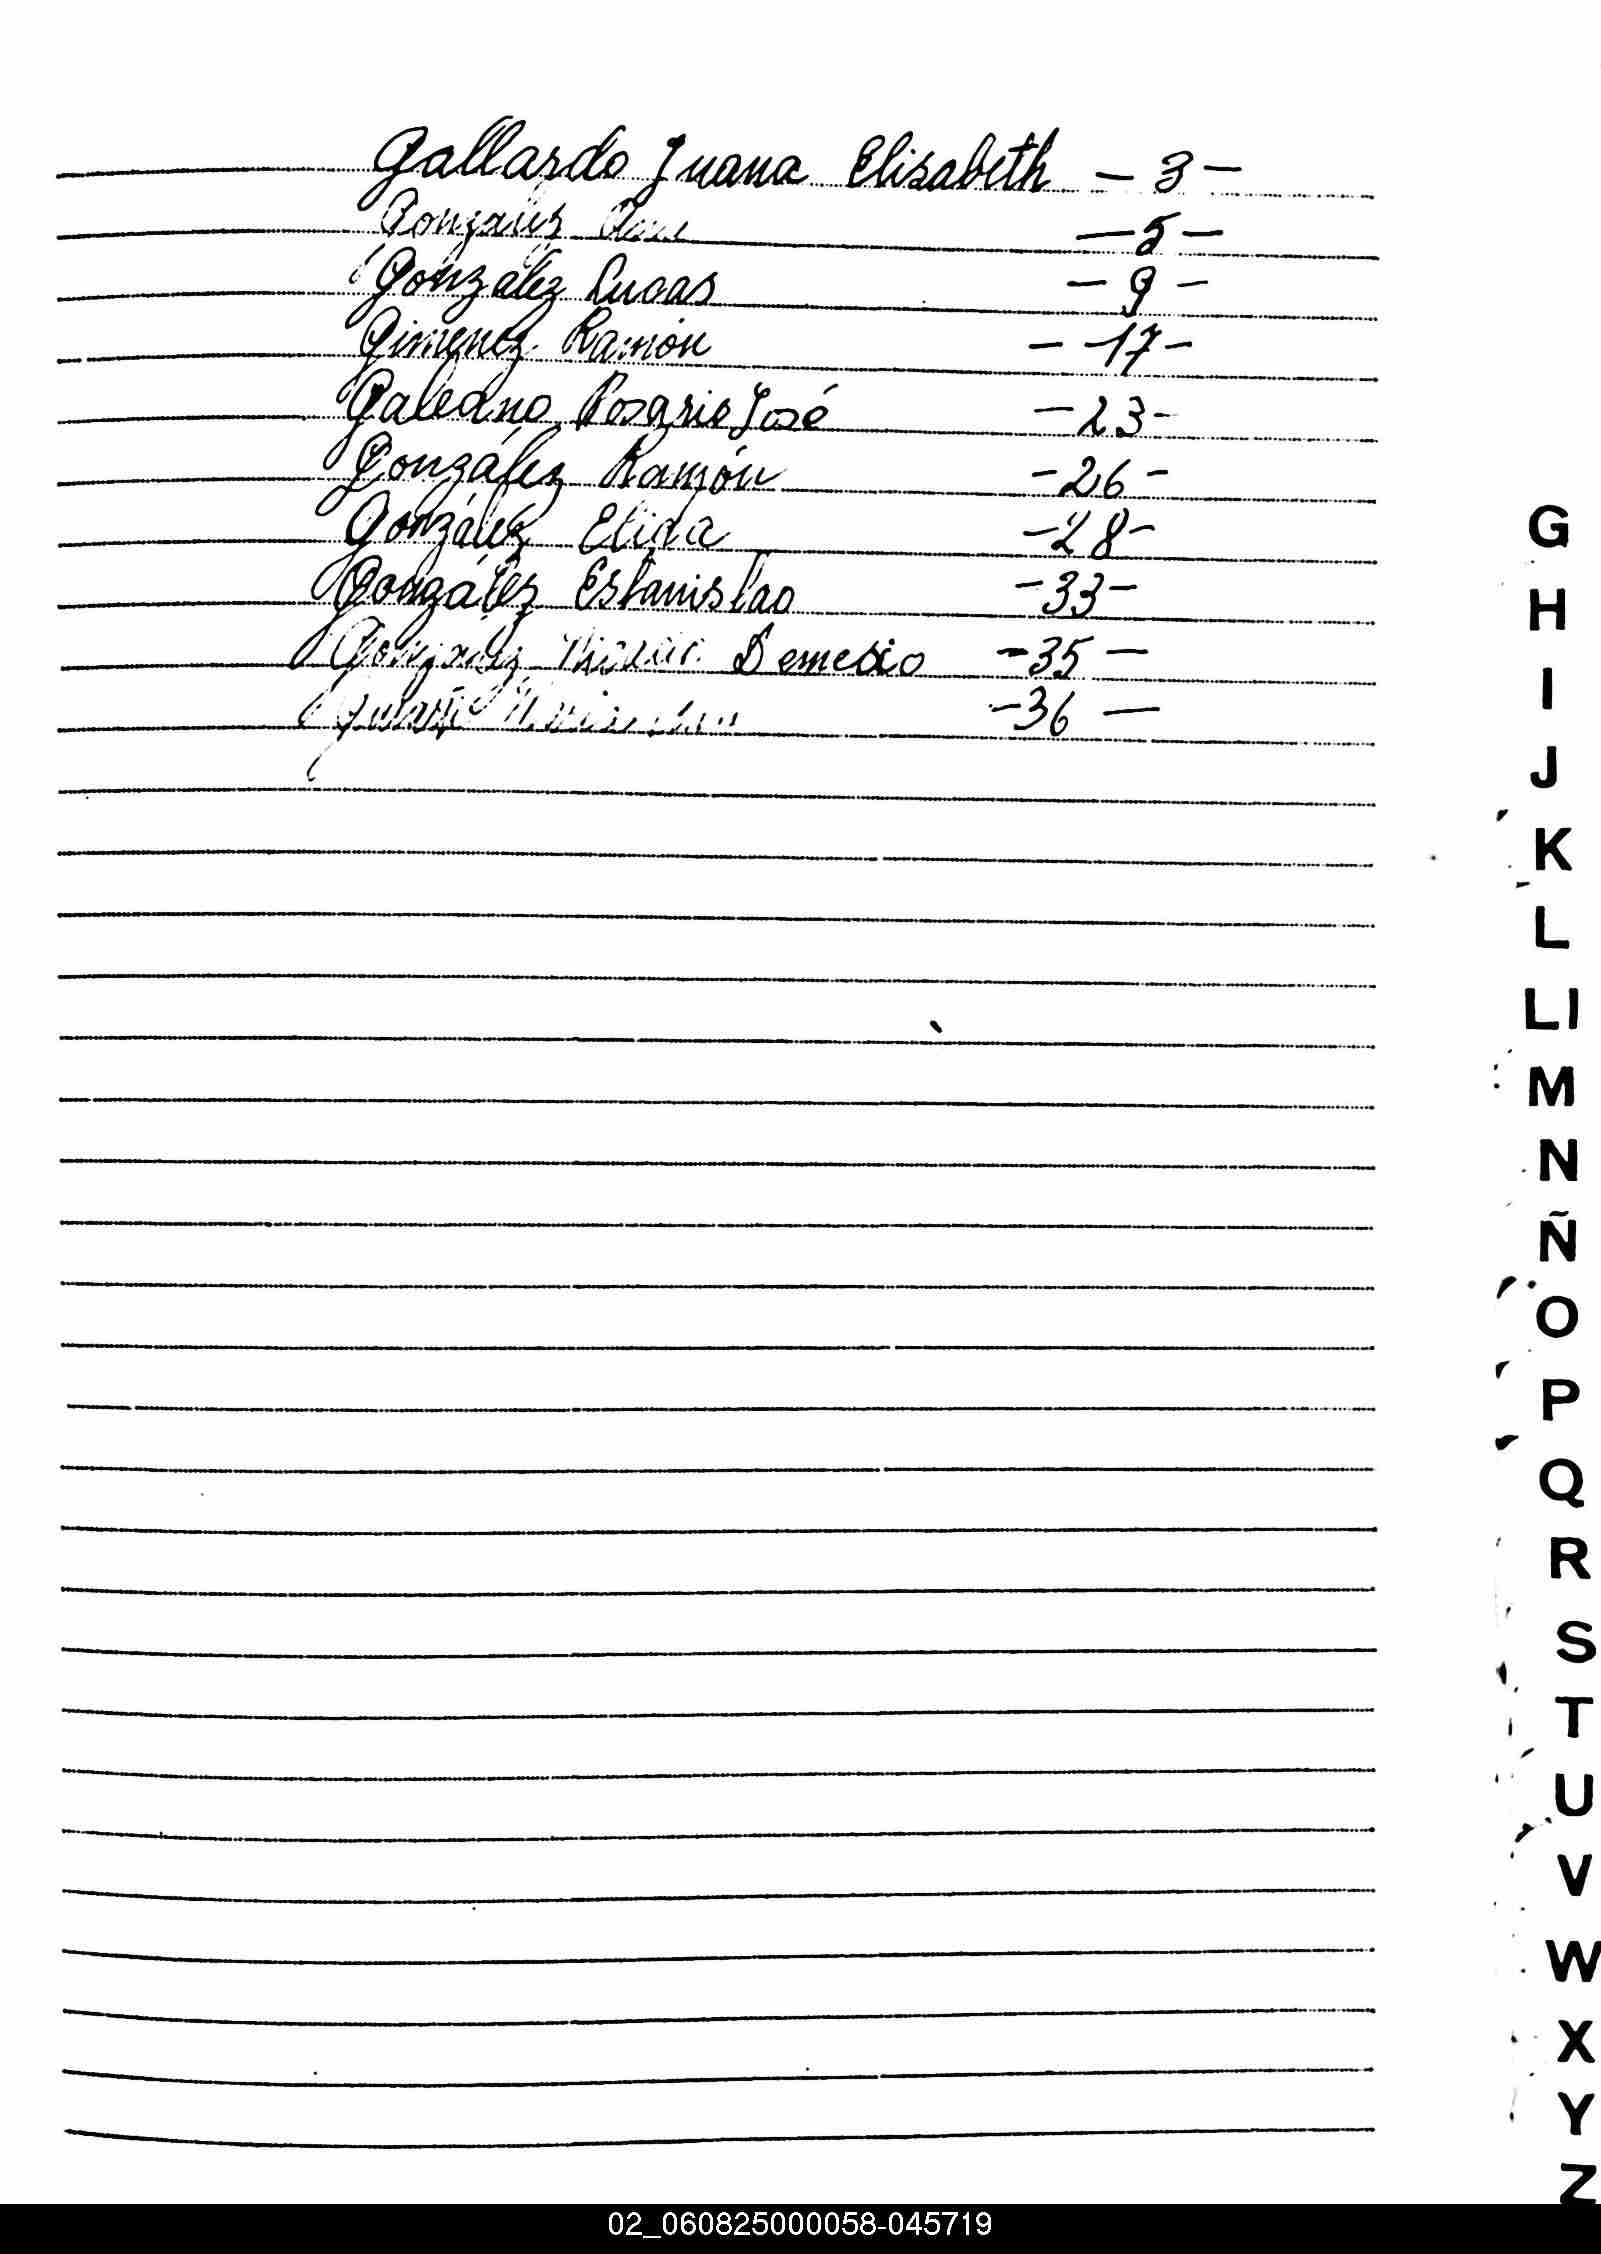 Gallardo Juana Elisabeth - 3 -
González - 5 -
González Lucas - 9 -
Gimenez Ramón - 17 -
Galeano Rosario José - 23 -
González Ramón - 26 -
González Elida - 28 -
González Estanislao - 33 -
González Demesio - 35 -
- 36 -
G
H
I
J
K
L
Ll
M
N
Ñ
O
P
Q
R
S
T
U
V
W
X
Y
Z
02_060825000058-045719